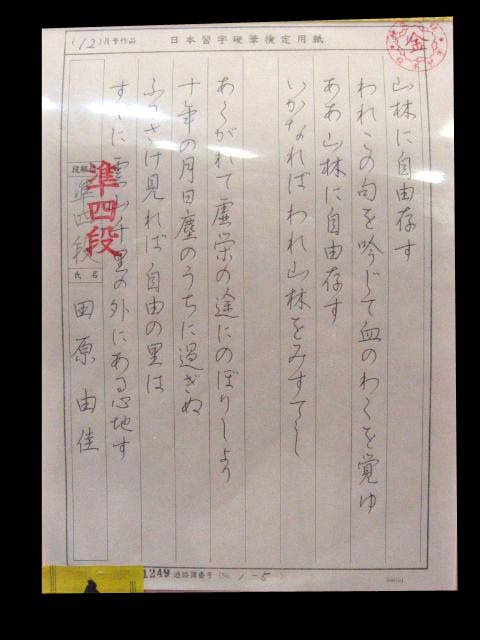 (12)月号作品 日本習字硬筆検定用紙
金
山林に自由存す
われこの句を吟じて血のわくを覚ゆ
ああ山林に自由存す
いかなればわれ山林をみすてし
あくがれて虚栄の途にのぼりしより
十年の月日塵のうちに過ぎぬ
ふりさけ見れば自由の里は
すでに雲山千里の外にある心地す
段級
準四段
準四段
氏名
田原由佳
1249 連絡簿番号 (No. 1-5 )